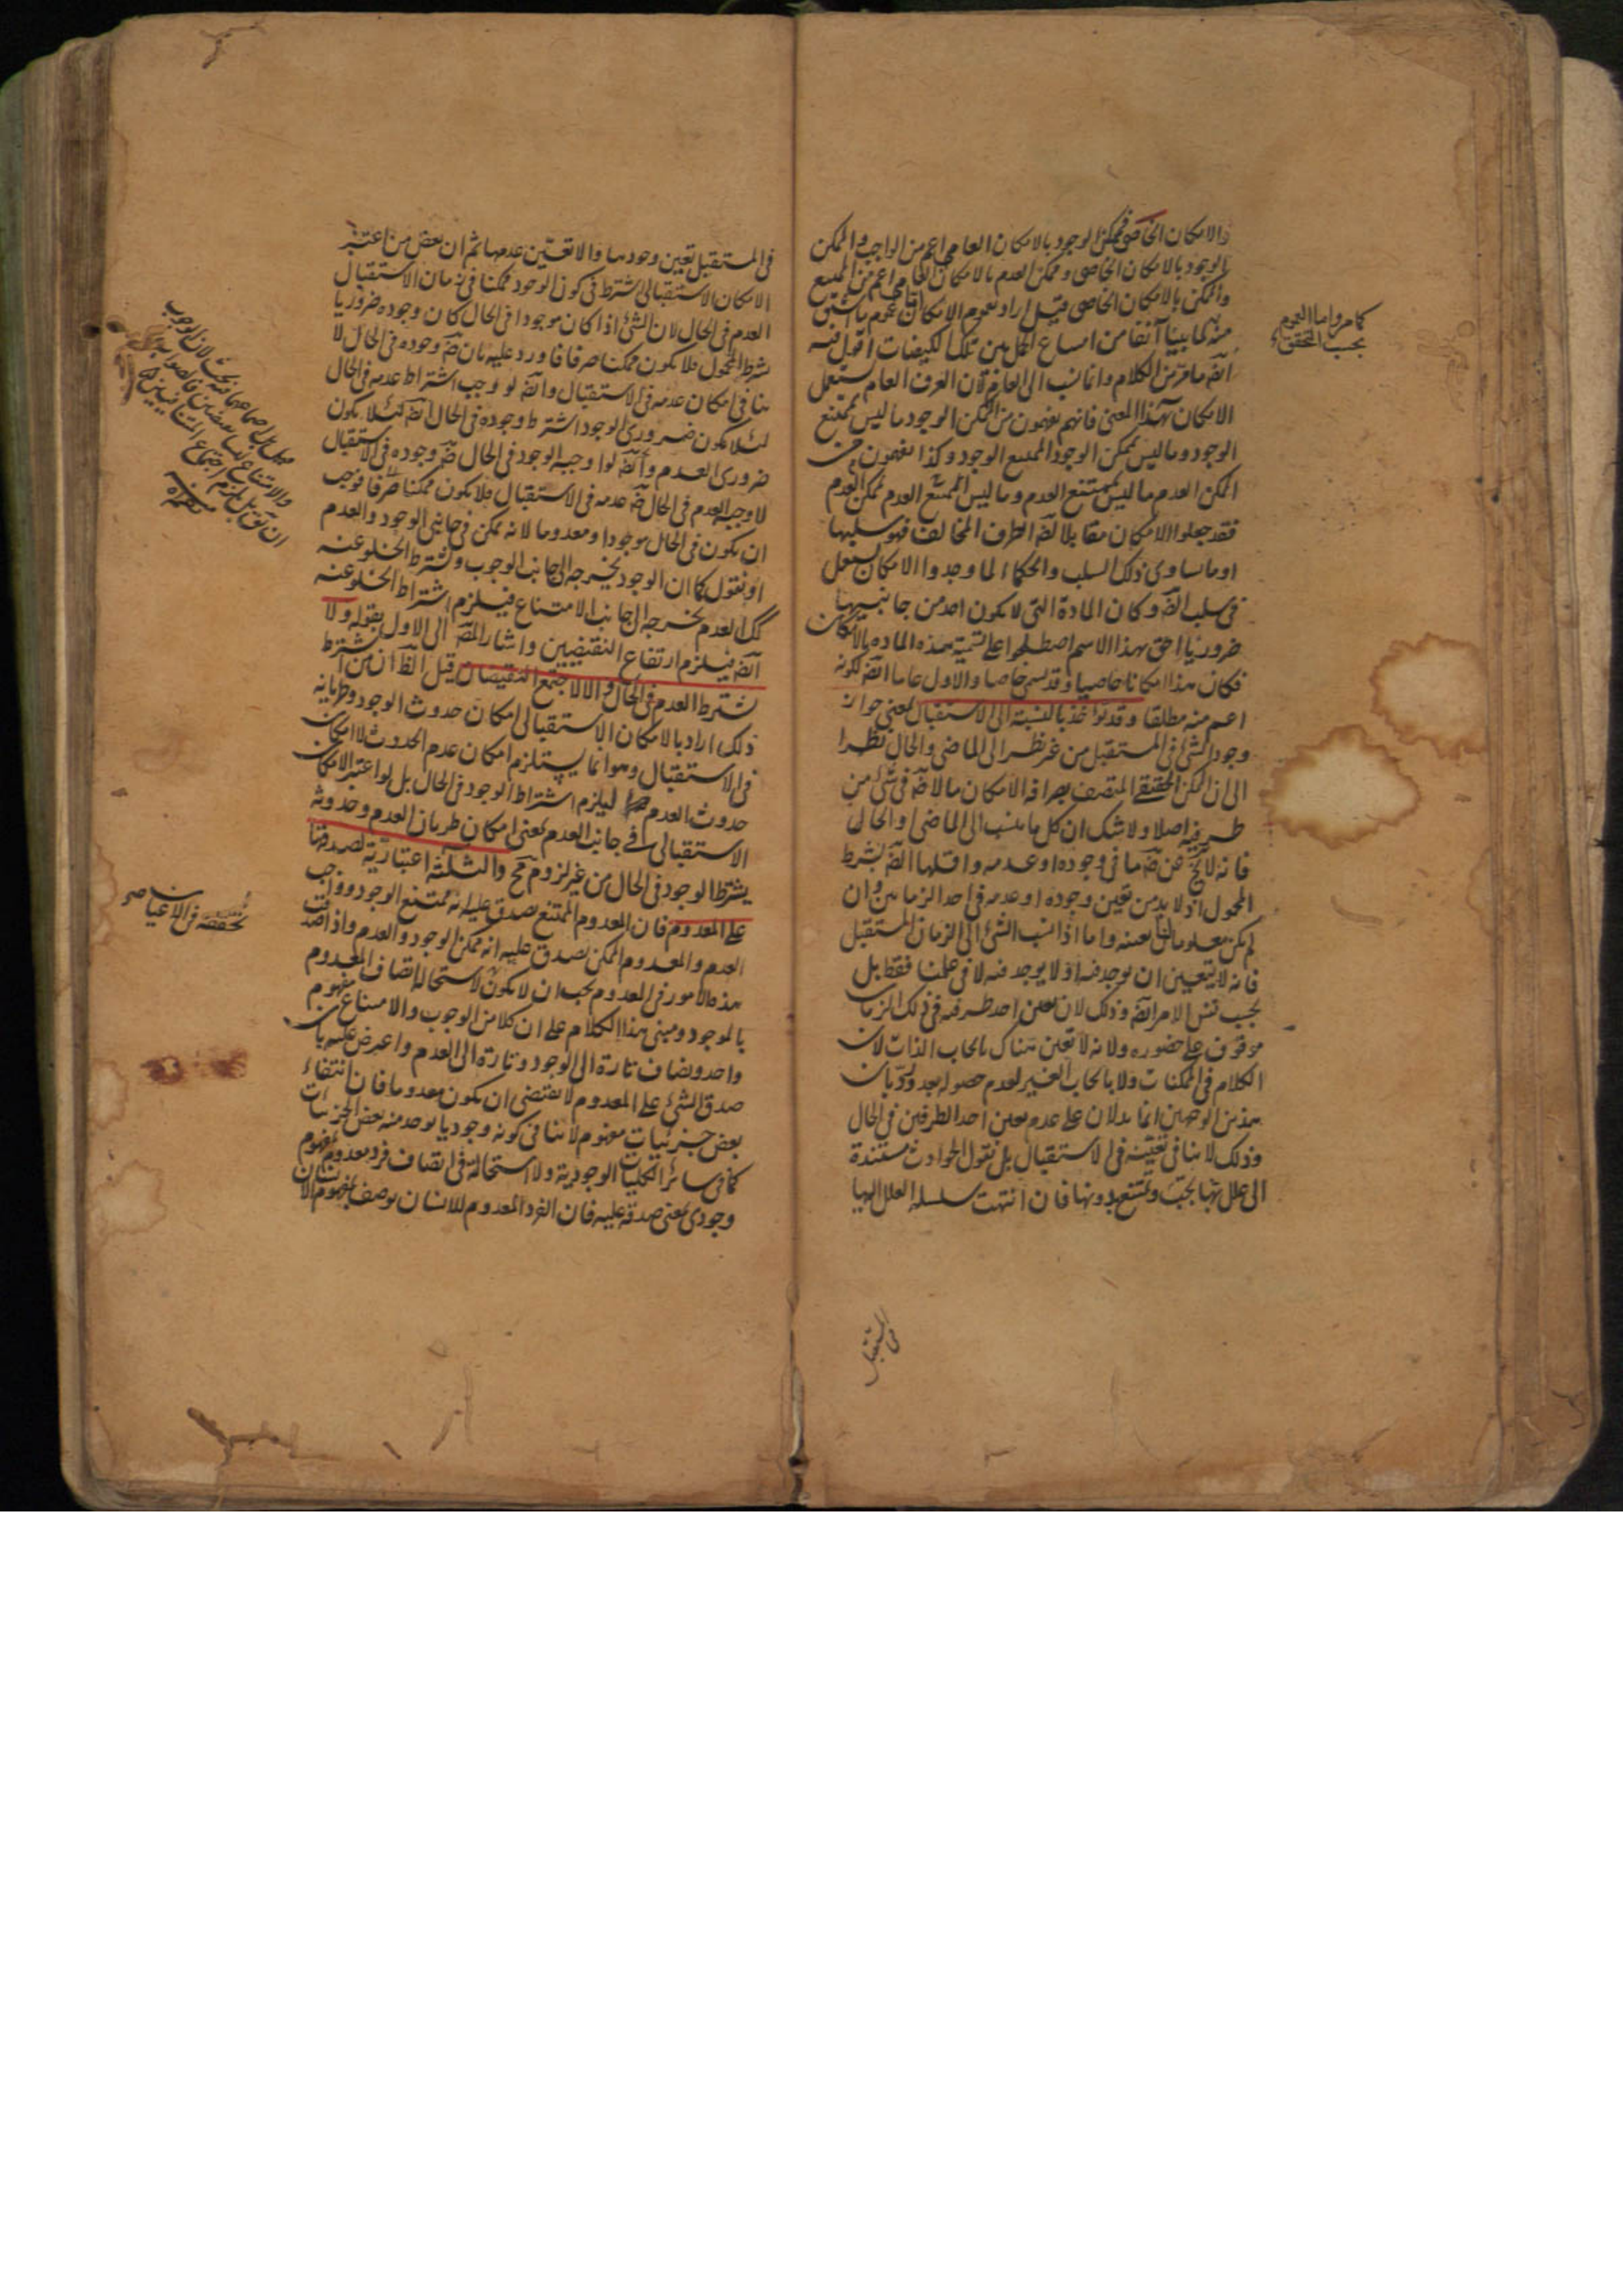 والامكان الخاصى فممكن الوجود بالامكان العامى اعم من الواجب والممكن
الوجود بالامكان الخاصى وممكن العدم بالامكان العام اعم من الممتنع
والممكن بالامكان الخاصى قيل اراد بعموم الامكان العام
منه لما بينا آنفا من امتناع الحمل بين تلك الكيفيات اقول فيه
ايضه ما مر من الكلام وانما نسب الى العامة لان العرف العام يستعمل
الامكان بهذا المعنى فانهم يفهمون من الممكن الوجود ما ليس بممتنع
الوجود وما ليس بممكن الوجود الممتنع الوجود وكذا يفهمون من
الممكن العدم ما ليس بممتنع العدم وما ليس الممتنع العدم بممكن العدم
فقد جعلوا الامكان مقابلا لضه الطرف المخالف فهو سلبها
او ما يساوى ذلك السلب والحكماء لما وجدوا الامكان يستعمل
فى سلب الضه وكان المادة التى لا يكون احد من جانبيها
ضروريا احق بهذا الاسم اصطلحوا على تسمية هذه المادة بالامكان
فكان هذا امكانا خاصيا وقد يسمى خاصا والاول عاما ايضه لكونه
اعم منه مطلقا وقد يؤاخذ بالنسبة الى الاستقبال بمعنى جواز
وجود الشئ فى المستقبل من غير نظر الى الماضى والحال نظرا
الى ان الممكن الحقيقى المتصف بصرافة الامكان ما لا ضه فى شئ من
طرفيه اصلا ولا شك ان كل ما ينسب الى الماضى او الحال
فانه لا يخ عن ضه ما فى وجوده او عدمه واقلها الضه بشرط
المحمول اذ لا بد من تعين وجوده او عدمه فى احد الزمانين وان
لم يكن معلوما لنا بعينه واما اذا نسب الشئ الى الزمان المستقبل
فانه لا يتعين ان يوجد فيه او لا يوجد فيه لا فى علمنا فقط بل
بحسب نفس الامر ايضه وذلك لان تعين احد طرفيه فى ذلك الزمان
موقوف على حضوره ولانه لا تعين هناك بايجاب الذات لان
الكلام فى الممكنات ولا بايجاب الغير لعدم حصوله بعد ورد بان
هذين الوجهين انما يدلان على عدم تعين احد الطرفين فى الحال
وذلك لا ينافى تعينه فى الاستقبال بل نقول الحوادث مستندة
الى علل بها يجب ويمتنع بدونها فان انتهت سلسلة العلل اليها
كما مر واما العموم
بحسب التحقق
المستقبل
فى المستقبل تعين وجودها والا تعين عدمها ثم ان بعض من اعتبر
الامكان الاستقبالى اشترط فى كون الوجود ممكنا فى زمان الاستقبال
العدم فى الحال لان الشئ اذا كان موجودا فى الحال كان وجوده ضروريا
بشرط المحمول فلا يكون ممكنا صرفا فاورد عليه بان ضه وجوده فى الحال لا
ينافى امكان عدمه فى الاستقبال وايضه لو وجب اشتراط عدمه فى الحال
لئلا يكون ضرورى الوجود اشترط وجوده فى الحال ايضه لئلا يكون
ضرورى العدم وايضه لو اوجب الوجود فى الحال ضه وجوده فى الاستقبال
لاوجب العدم فى الحال ضه عدمه فى الاستقبال فلا يكون ممكنا صرفا فوجب
ان يكون فى الحال موجودا ومعدوما لانه ممكن فى جانبى الوجود والعدم
او نقول كما ان الوجود يخرجه الى جانب الوجوب واشترط الخلو عنه
كك العدم يخرجه الى جانب الامتناع فيلزم اشتراط الخلو عنه
ايضه فيلزم ارتفاع النقيضين واشار المصه الى الاول بقوله ولا
يشترط العدم فى الحال والا لاجتمع النقيضان قيل الظ ان من اشترط
ذلك اراد بالامكان الاستقبالى امكان حدوث الوجود وطريانه
فى الاستقبال وهو انما يستلزم امكان عدم الحدوث لا امكان
حدوث العدم ليلزم اشتراط الوجود فى الحال بل لو اعتبر الامكان
الاستقبالى فى جانب العدم بمعنى امكان طريان العدم وحدوثه
يشترط الوجود فى الحال من غير لزوم مح والثلثة اعتبارية لصدقها
على المعدوم فان المعدوم الممتنع يصدق عليه انه ممتنع الوجود وواجب
العدم والمعدوم الممكن يصدق عليه انه ممكن الوجود والعدم واذا صدقت
هذه الامور فى المعدوم يجب ان لا يكون لاستحالة اتصاف المعدوم
بالموجود ومبنى هذا الكلام على ان كلا من الوجوب والامتناع مفهوم
واحد ويضاف تارة الى الوجود وتارة الى العدم واعترض عليه بان
صدق الشئ على المعدوم لا يقتضى ان يكون معدوما فان انتفاء
بعض جزئيات مفهوم لا ينافى كونه وجوديا يوجد منه بعض الجزئيات
كما فى سائر الكليات الوجودية ولا استحالة فى اتصاف فرد معدوم بمفهوم
وجودى بمعنى صدقه عليه فان الفرد المعدوم للانسان يوصف بمفهوم الانسان